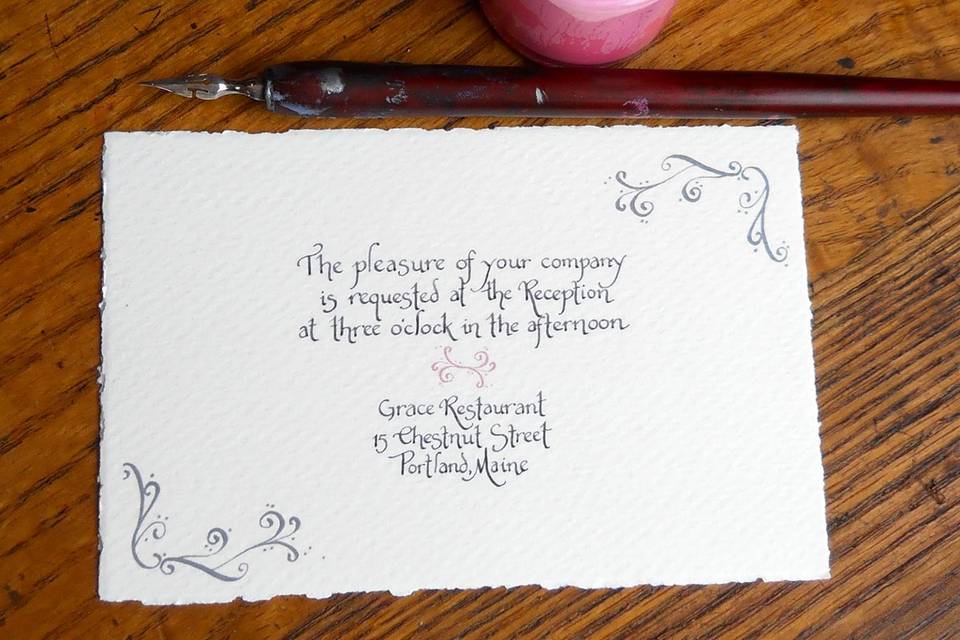 The pleasure of your company
is requested at the Reception
at three o'clock in the afternoon
Grace Restaurant
15 Chestnut Street
Portland, Maine